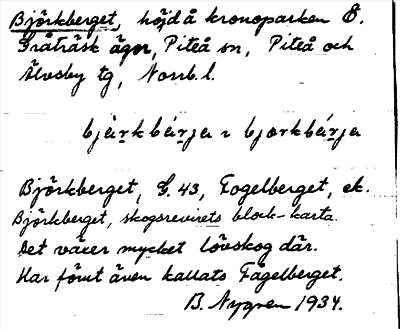 Björkberget, höjd å kronoparken Ö.
Gråträsk ägor, Piteå sn, Piteå och
Älvsby tg, Norrb. l.
bjärkbärja ~ bjorkbärja
Björkberget, G. 43, Fogelberget, ek.
Björkberget, skogsrevirets block-karta.
Det växer mycket lövskog där.
Har förut även kallats Fågelberget.
B. Nygren 1934.